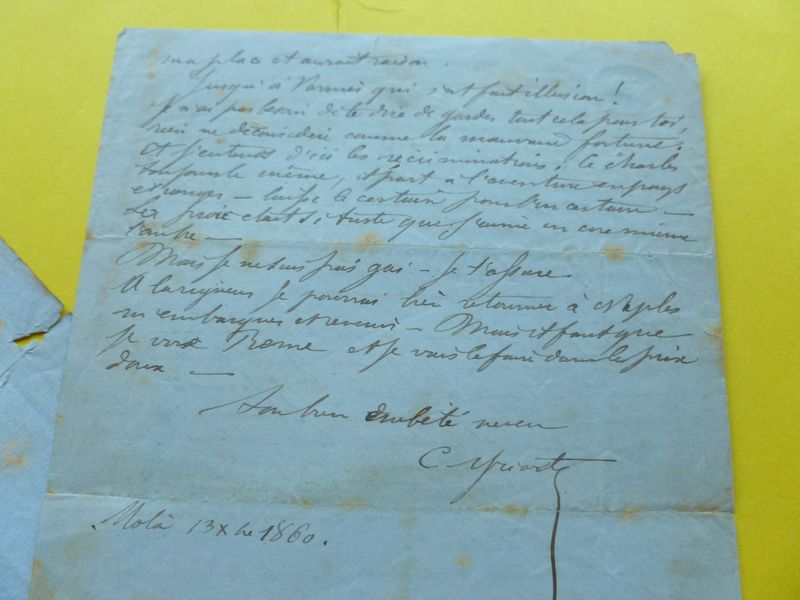 ma place et auront raison.
Jusqu'à Vannes qui s'est fait illusion!
Je n'ai pas besoin de te dire de garder tout cela pour toi,
rien ne déconsidère comme la mauvaise fortune.
Et j'entends d'ici les récriminations. Ce Charles
toujours le même, il part à l'aventure en pays
étranger – laisse le certain pour l'incertain –
La proie était si triste que j'aime encore mieux
l'ombre –
Mais je ne suis pas gai – je t'assure
A la rigueur je pourrai bien retourner à Naples
m'embarquer et revenir – Mais il faut que
je voie Rome et je vais le faire dans les prix
doux –
Ton bien embêté neveu
C. Yriarte
Mola 13 Xbre 1860.